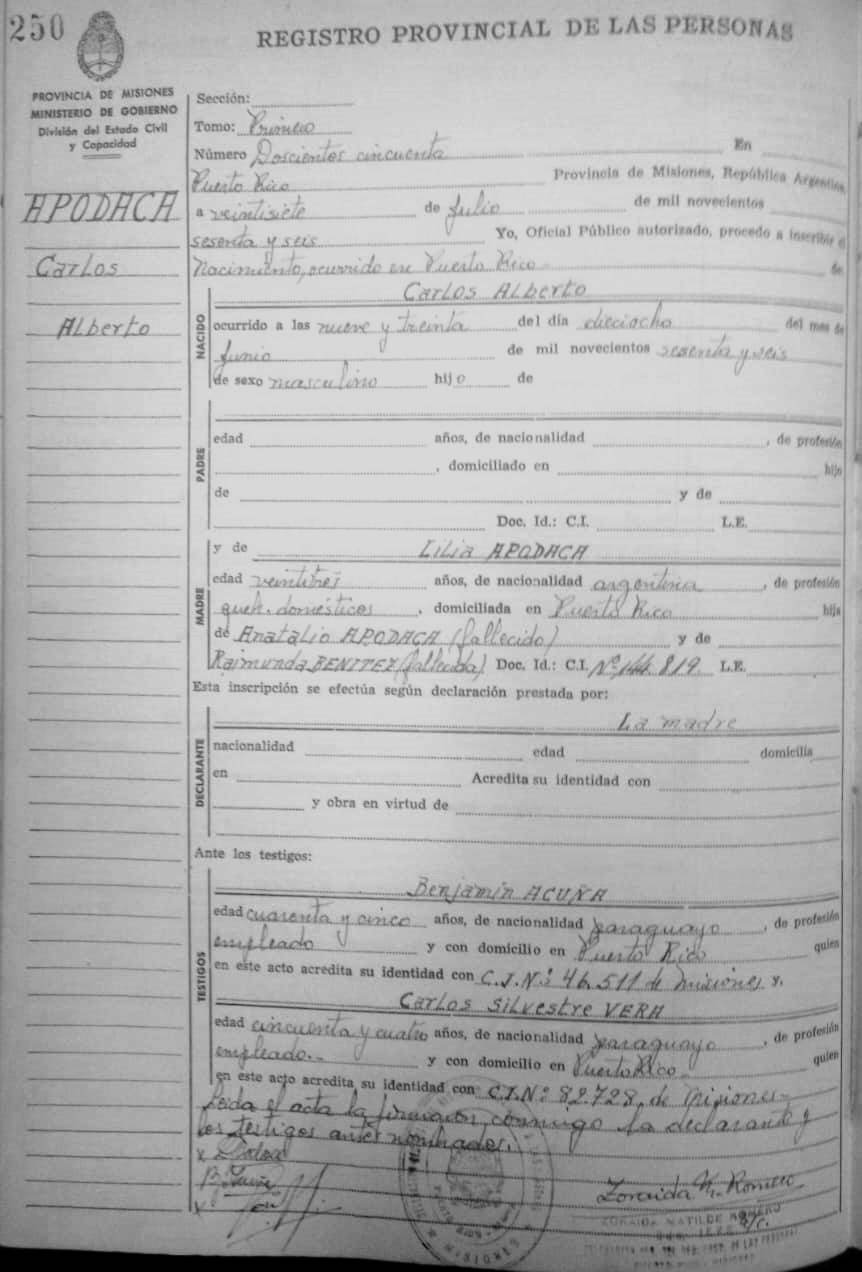 250
REGISTRO PROVINCIAL DE LAS PERSONAS
PROVINCIA DE MISIONES
MINISTERIO DE GOBIERNO
División del Estado Civil
y Capacidad
APODACA
Carlos
Alberto
Sección:
Tomo: Primero
Número Doscientos cincuenta En
Puerto Rico Provincia de Misiones, República Argentina,
a veintisiete de Julio de mil novecientos
sesenta y seis Yo, Oficial Público autorizado, procedo a inscribir el
Nacimiento, ocurrido en Puerto Rico de
NACIDO
Carlos Alberto
ocurrido a las nueve y treinta del día dieciocho del mes de
Junio de mil novecientos sesenta y seis
de sexo masculino hijo de
PADRE
edad años, de nacionalidad , de profesión
, domiciliado en hijo
de y de
Doc. Id.: C.I. L.E.
MADRE
y de Lilia APODACA
edad veintitrés años, de nacionalidad argentina , de profesión
queh. domésticos , domiciliada en Puerto Rico hija
de Anatalio APODACA (fallecido) y de
Raimunda BENITEZ (fallecida) Doc. Id.: C.I. Nº 144.819 L.E.
Esta inscripción se efectúa según declaración prestada por:
DECLARANTE
La madre
nacionalidad edad domicilia
en Acredita su identidad con
y obra en virtud de
Ante los testigos:
TESTIGOS
Benjamín ACUÑA
edad cuarenta y cinco años, de nacionalidad paraguayo , de profesión
empleado y con domicilio en Puerto Rico quien
en este acto acredita su identidad con C.I.Nº 46.511 de Misiones y.
Carlos Silvestre VERA
edad cincuenta y cuatro años, de nacionalidad paraguayo , de profesión
empleado.- y con domicilio en Puerto Rico quien
en este acto acredita su identidad con C.I.Nº 82.728, de Misiones-
Leida el acta la firmaron conmigo la declarante y
los testigos antes nombrados.
Zoraida M. Romero
ZORAIDA MATILDE ROMERO